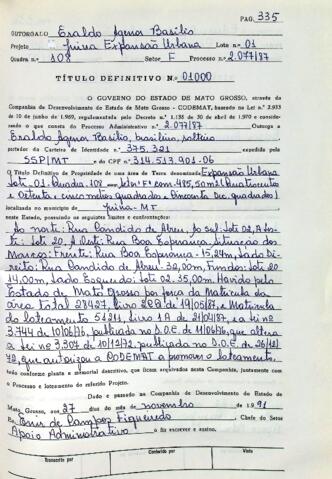 PAG. 335
OUTORGADO Eraldo Agner Basilio
Projeto Juina Expansão Urbana Lote n.o 01
Quadra n.o 108 Setor F Processo n.o 2.077/87
TÍTULO DEFINITIVO N.o 01000
O GOVERNO DO ESTADO DE MATO GROSSO, ATRAVÉS DA
Companhia de Desenvolvimento do Estado de Mato Grosso - CODEMAT, baseado na Lei n.o 2.933
de 10 de junho de 1969, regulamentado pelo Decreto n.o 1.138 de 30 de abril de 1970 e considerando
o que consta do Processo Administrativo n.o 2.077/87 Outorga a
Eraldo Agner Basilio, brasileiro, solteiro
portador da Carteira de Identidade n.o 375.321 expedida pela
SSP/MT e do CPF n.o 314.513.901-06
O Título Definitivo de Propriedade de uma área de Terra denominada Expansão Urbana
Lote: 01. Quadra: 108 com 485,50m2 (Quatrocentos
e Oitenta e cinco metros quadrados e Cincoenta Dec. quadrados)
localizada no município de Juina-MT
neste Estado, possuindo os seguintes limites e confrontações:
Ao norte: Rua Candido de Abreu. Ao sul: Lote 02, A
Lote 20, A Oeste: Rua Boa Esperança. Situação dos
Marcos: Frente: Rua Boa Esperança - 15,24m, Lado
Direito: Rua Candido de Abreu - 32,00m, Fundos: Lote 20
14,00m, Lado Esquerdo: Lote 02. 35,00m. Havido pelo
Estado de Mato Grosso por força da Matricula da
área Total livro 2 de 19/05/87, e Matricula
do loteamento 51211, livro 1A de 21/04/87, e Lei nº
3.744 de 10/06/76, publicada no D.O.E. de 11/06/76, que altera
a Lei nº 3.307 de 10/12/72, publicada no D.O.E. de 26/12/
72, que autorizou a CODEMAT a promover o loteamento,
tudo conforme planta e memorial descritivo, que ficam arquivados nesta Companhia, juntamente com
o Processo e loteamento do referido Projeto.
Dado e passado na Companhia de Desenvolvimento do Estado de
Mato Grosso, aos 27 dias do mês de novembro de 1991
Eu de Campos Figueiredo Chefe do Setor
Apoio Administrativo o fiz escrever e assino.
Transcrito por Conferido por Visto